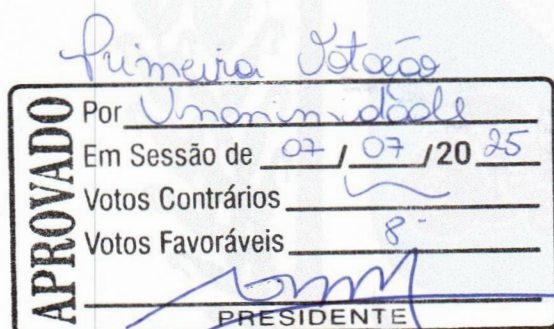 Primeira Votação
APROVADO
Por Unanimidade
Em Sessão de 07 / 07 /20 25
Votos Contrários
Votos Favoráveis 8-
PRESIDENTE